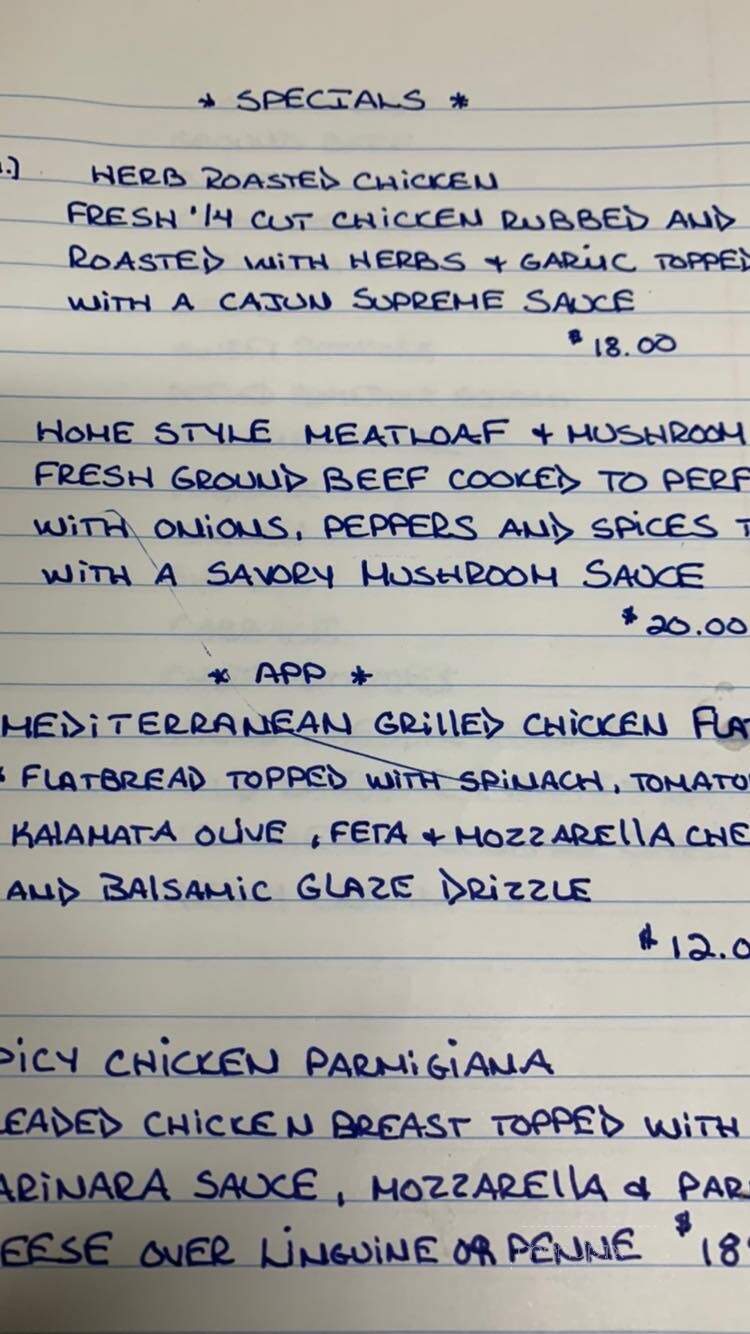 * SPECIALS *
.) HERB ROASTED CHiCKEN
FRESH 1/4 CUT CHiCKEN RUBBED AND
ROASTED WiTH HERBS & GARLiC TOPPED
WiTH A CAJUN SUPREME SAUCE
$18.00
HOME STYLE MEATLOAF & MUSHROOM
FRESH GROUND BEEF COOKED TO PERF
WiTH ONiONS, PEPPERS AND SPiCES T
WiTH A SAVORY MUSHROOM SAUCE
$20.00
* APP *
MEDiTERRANEAN GRillED CHiCKEN FLA
FLATBREAD TOPPED WiTH SPiNACH, TOMATO
KAlAMATA OLiVE, FETA & MOZZARElla CHE
AND BAlSAMiC GLAZE DRiZZLE
$12.0
PiCY CHiCKEN PARMiGiANA
EADED CHiCKEN BREAST TOPPED WiTH
ARiNARA SAUCE, MOZZARElla & PAR
EESE OVER LiNGUiNE OR PENNE $18